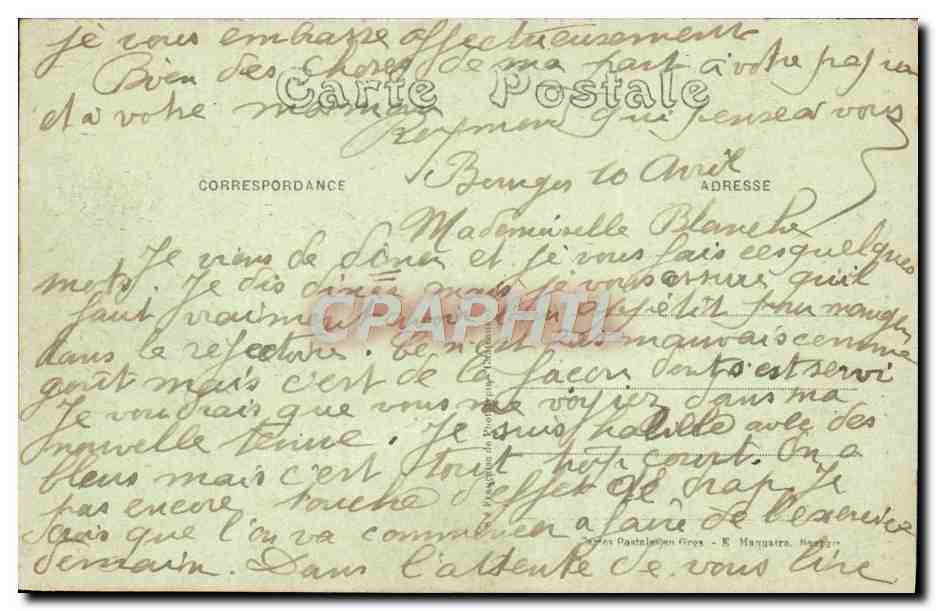 je vous embrasse affectueusement
Bien des choses de ma part à votre papa
et à votre maman
Raymond qui pense à vous
Carte Postale
CORRESPONDANCE
ADRESSE
Bourges 10 Avril
Mademoiselle Blanche
Je viens de diner et je vous fais ces quelques
mots. Je dis diner mais je vous assure qu'il
faut vraiment avoir bon appétit pour manger
dans le refectoire. Ce n'est pas mauvais comme
goût mais c'est de la façon dont s'est servi
Je voudrais que vous me voyiez dans ma
nouvelle tenue. Je suis habillé avec des
bleus mais c'est tout trop court. On a
pas encore touché d'effet de drap. Je
crois que l'on va commencer a faire de l'exercice
demain. Dans l'attente de vous lire
CPAPHIL
Cartes Postales en Gros - E. Maquaire, Bourges